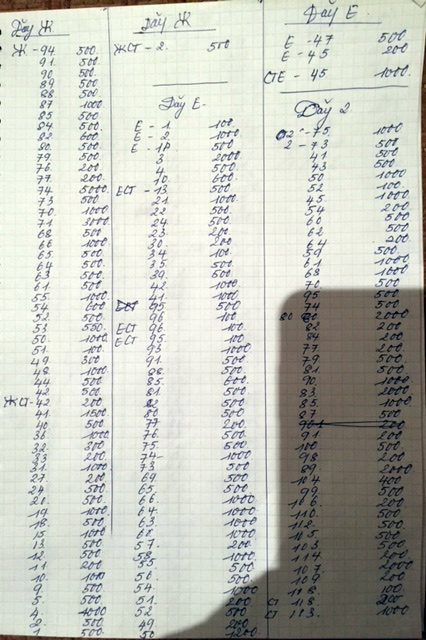 Дâу Ж
Ж - 94 500.
91. 500.
90 500.
89 500
88 500
87 1000
85 500.
84 500.
82 600
80. 500.
79 500
76. 200
77. 200
74 5000.
73 500
70 1000
71 3000
68 500
66 1000
65. 500
64 500.
63 500
61 500
55. 1000
53 500.
50. 1000
51. 100.
49 300
48 1000
44 500
42 500
ЖСТ - 42 200
41 1500
40 500
36 1000
32 300
33 200
31. 1000
27. 200
24 500
20. 500
19 1000
18 500
15 1000
13 500
12 500
11 200
10. 1000
9 500
5. 500
4 1000
2 500
1 500
Дâу Ж
ЖСТ - 2. 500
Дâу Е
Е - 1 100.
Е - 2 1000
Е - 1Р 500
3 2000
4 500
10. 600
ЕСТ - 13 500
21 1000
22 500
24 500
23 200
30. 200
34 100
35 500
39. 500
42 1000
41. 1000
95 500
96 100
ЕСТ 96 100.
ЕСТ 95 100
93 1000
91. 500
88 500
85 600
81 500
80 500
77 200
76. 500
75. 500
74 1000
73 500
69. 500
65 500
66 1000
64. 1000
63. 1000
57. 200
55. 500
50. 500
54. 1000
51. 200
52 500
49 200
Дâу Е
Е - 47 500
Е - 45 200
СТЕ - 45 1000
Дâу 2
2 - 75 1000
2 - 73 500
41 500
43 500
50 1000
52 100
45 1000
54 200
60 500
62 500
64 200
59 500
61 1000
68 1000
70 500
95 500
74 500
80 2000
82 200
84 200
77 200
79 500
81 500
90 1000
83 2000
85. 1000
87 500
91. 200
100 500
98 200
89 2000
104 400
99 500
106 200
110. 500
112. 500
105 500
103 500
114 200
107 2000
109 200
116 100
СТ 118 200
СТ 113. 1000